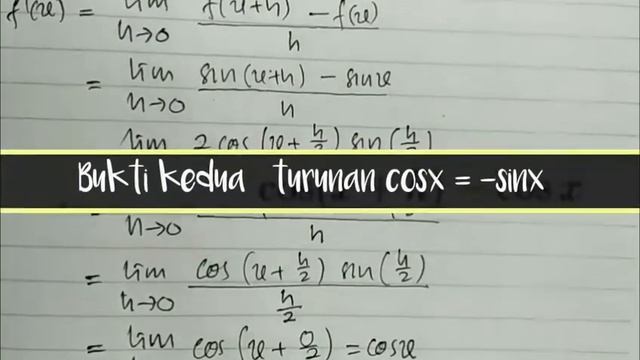 f'(x) = lim f(x+h) − f(x)
h→0 h
= lim sin(x+h) − sinx
h→0 h
lim 2 cos (x+h/2) sin(h/2)
Bukti kedua turunan cosx = -sinx
h→0 h
= lim cos (x+h/2) sin(h/2)
h→0 h/2
= lim cos (x+0/2) = cosx